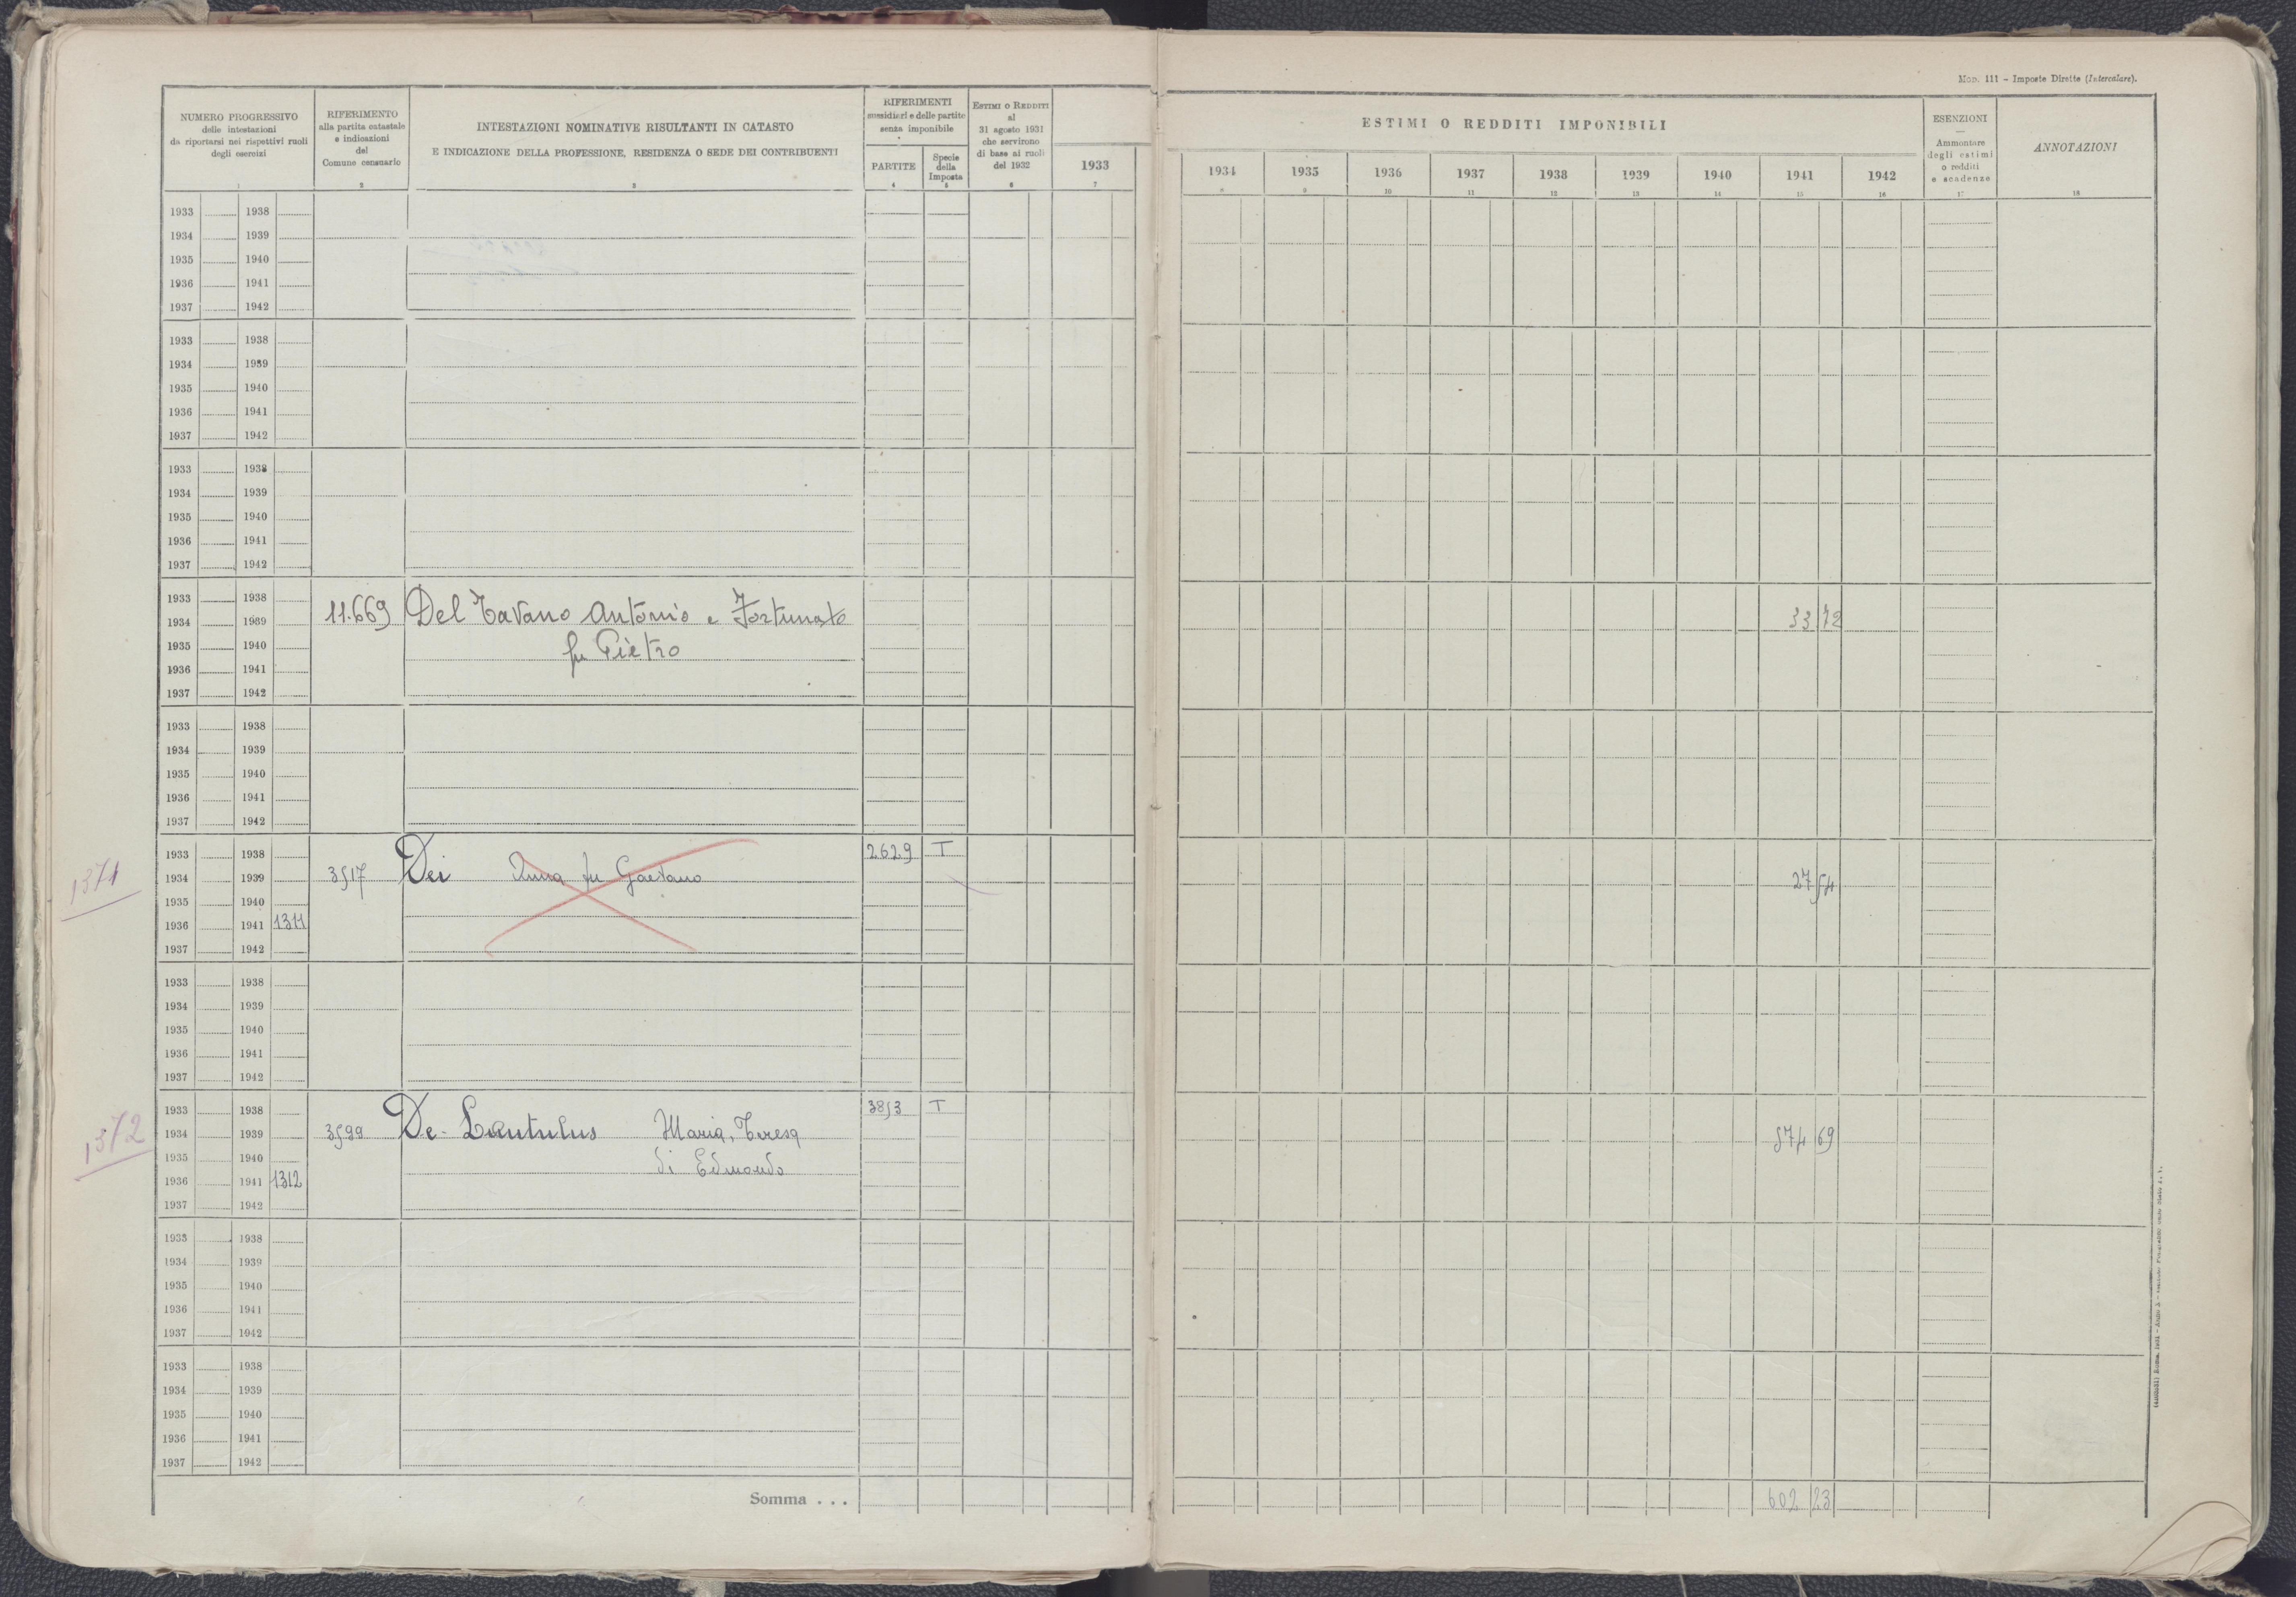 Mod. 111 - Imposte Dirette (Intercalare).
NUMERO PROGRESSIVO
delle intestazioni
da riportarsi nei rispettivi ruoli
degli esercizi
1
RIFERIMENTO
alla partita catastale
e indicazioni
del
Comune censuario
2
INTESTAZIONI NOMINATIVE RISULTANTI IN CATASTO
E INDICAZIONE DELLA PROFESSIONE, RESIDENZA O SEDE DEI CONTRIBUENTI
3
RIFERIMENTI
sussidiari e delle partite
senza imponibile
PARTITE
4
Specie
della
Imposta
5
ESTIMI O REDDITI
al
31 agosto 1931
che servirono
di base ai ruoli
del 1932
6
1933
7
ESTIMI O REDDITI IMPONIBILI
1934 1935 1936 1937 1938 1939 1940 1941 1942
8 9 10 11 12 13 14 15 16
ESENZIONI
Ammontare
degli estimi
o redditi
e scadenze
17
ANNOTAZIONI
18
1933 1938
1934 1939
1935 1940
1936 1941
1937 1942
1933 1938
1934 1939
1935 1940
1936 1941
1937 1942
1933 1938
1934 1939
1935 1940
1936 1941
1937 1942
1933 1938
1934 1939 11.669 Del Tavano Antonio e Fortunato 33 72
1935 1940 fu Pietro
1936 1941
1937 1942
1933 1938
1934 1939
1935 1940
1936 1941
1937 1942
1933 1938 2629 T
1371 1934 1939 3517 Dei Anna fu Gaetano 27 54
1935 1940
1936 1941 1311
1937 1942
1933 1938
1934 1939
1935 1940
1936 1941
1937 1942
1933 1938 3853 T
1372 1934 1939 3599 De Lantulus Maria, Teresa 574 69
1935 1940 di Edmondo
1936 1941 1312
1937 1942
1933 1938
1934 1939
1935 1940
1936 1941
1937 1942
1933 1938
1934 1939
1935 1940
1936 1941
1937 1942
Somma . . . 602 23